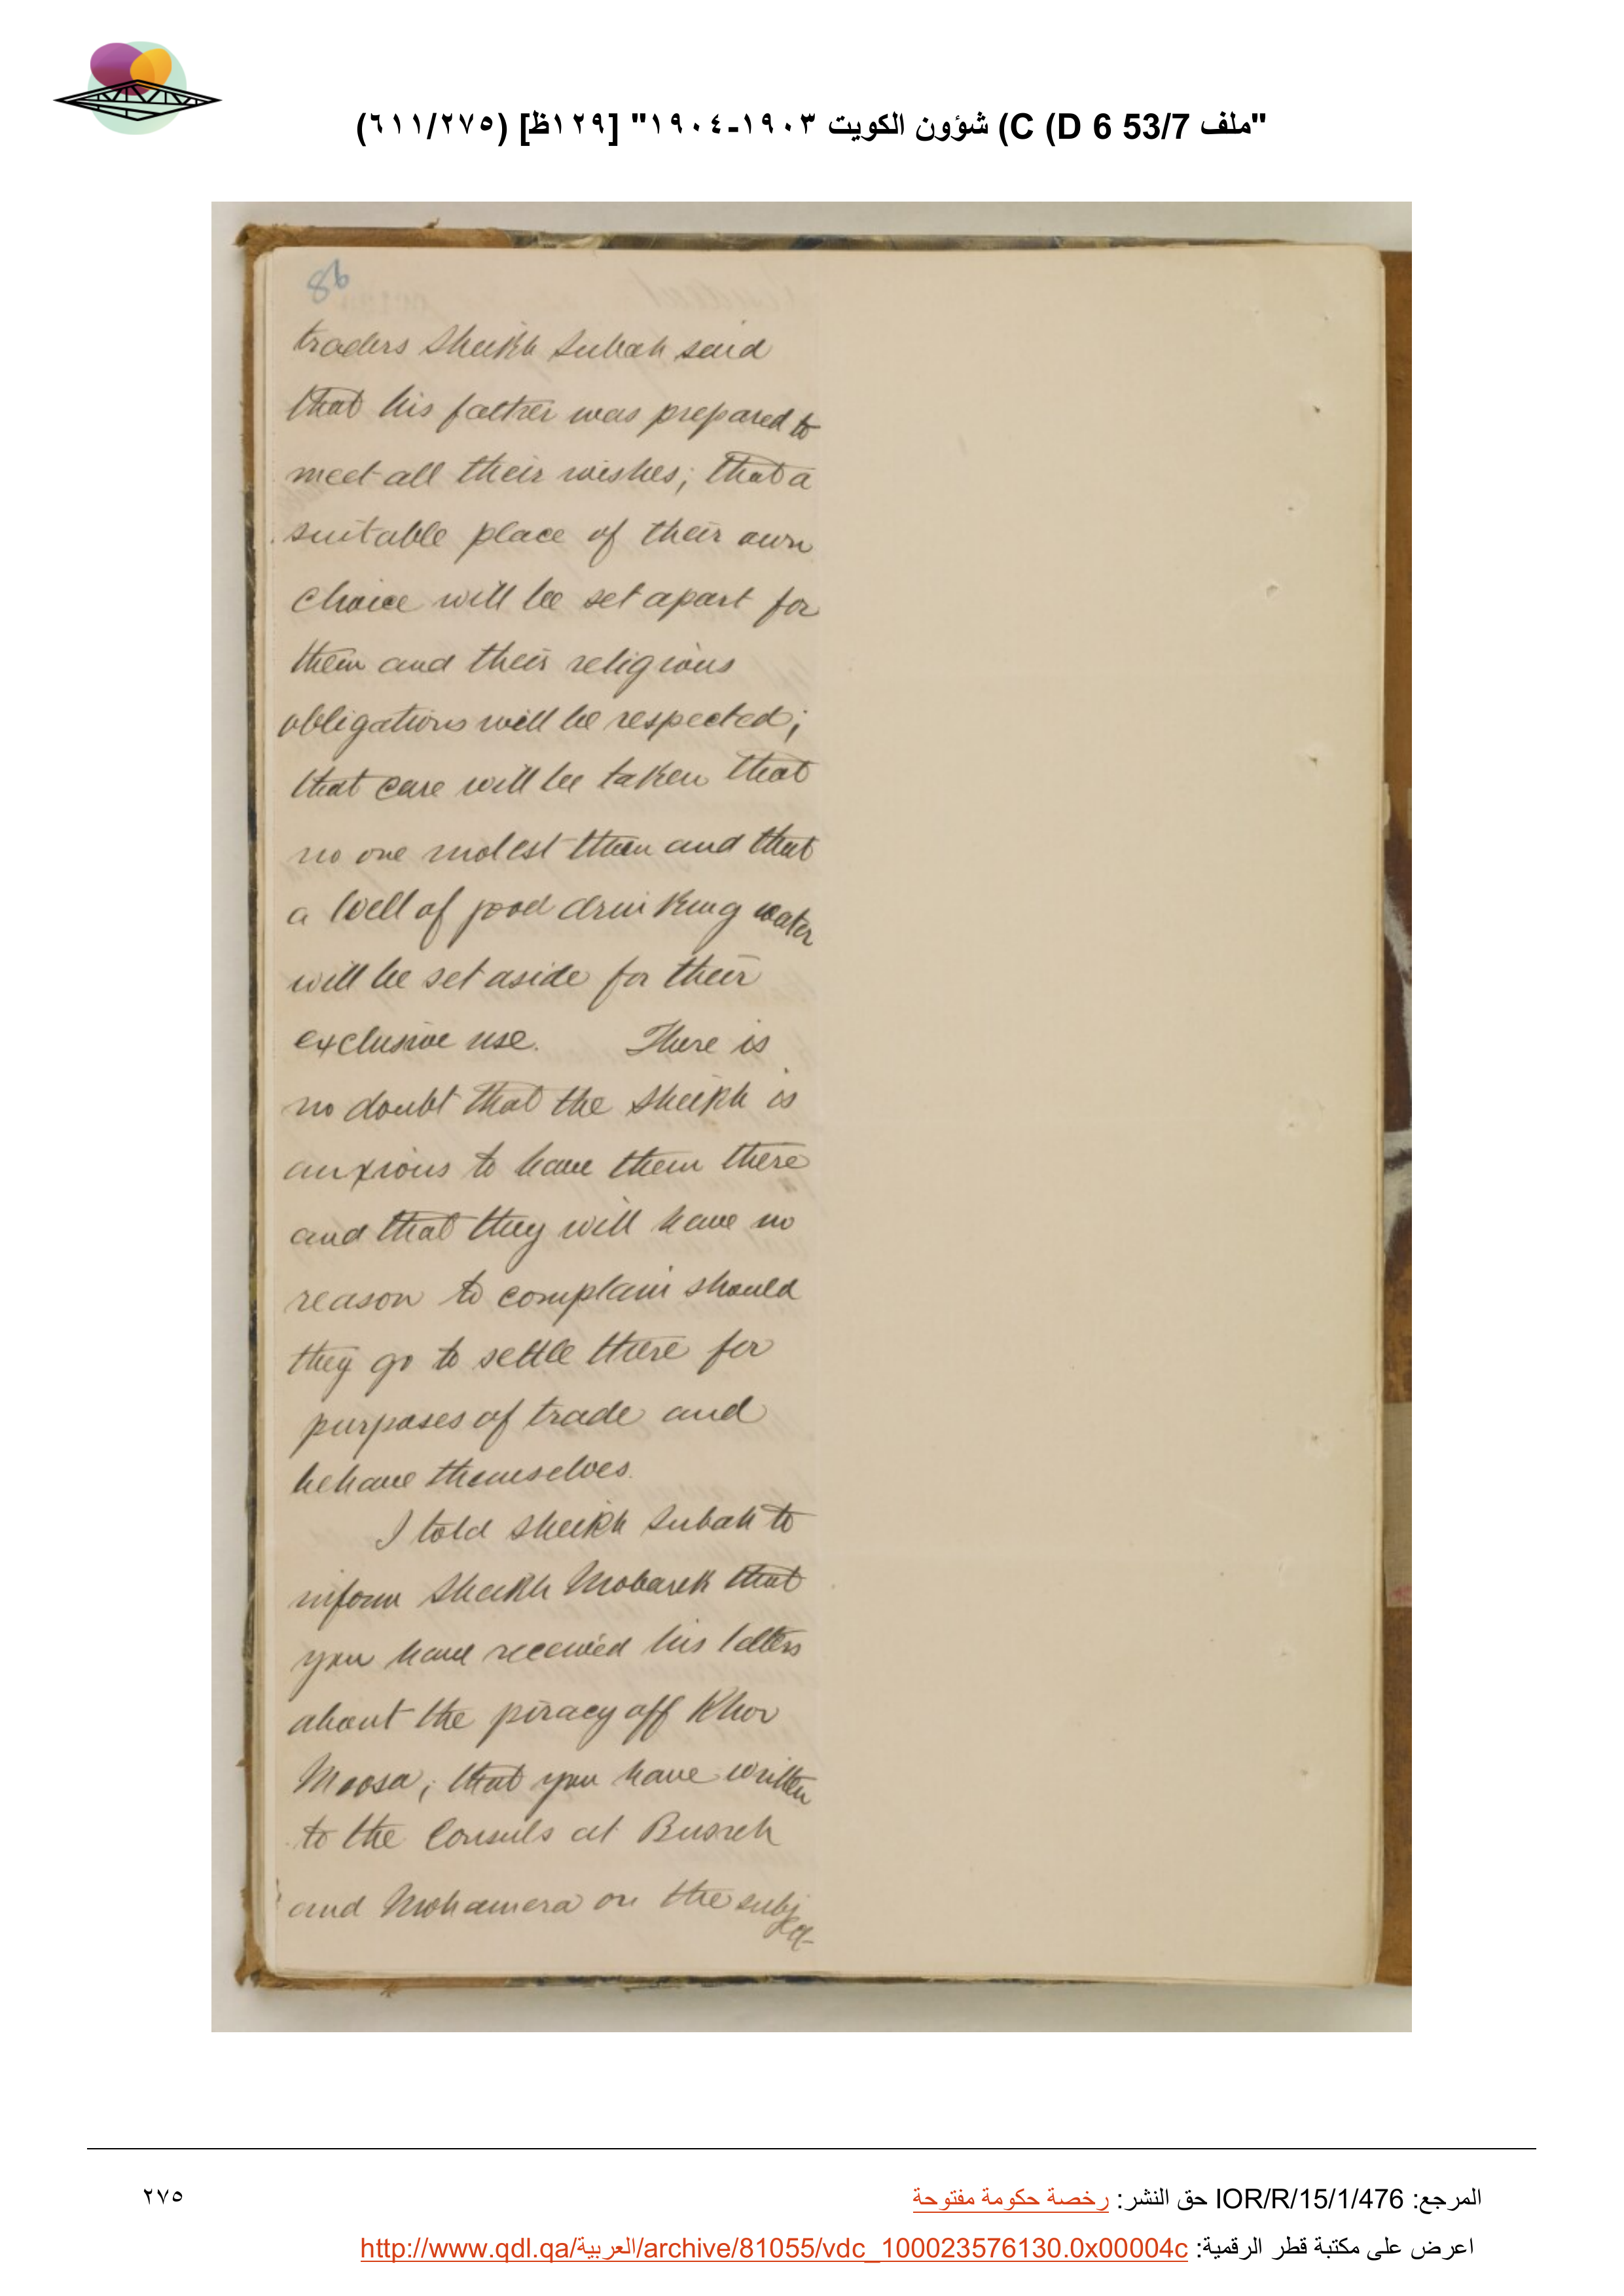 "ملف 53/7 D 6) C) شؤون الكويت ١٩٠٣-١٩٠٤" [١٢٩ظ] (٦١١/٢٧٥)
86
traders Sheikh Subah said
that his father was prepared to
meet all their wishes; that a
suitable place of their own
choice will be set apart for
them and their religious
obligations will be respected;
that care will be taken that
no one molest them and that
a well of good drinking water
will be set aside for their
exclusive use. There is
no doubt that the Sheikh is
anxious to have them there
and that they will have no
reason to complain should
they go to settle there for
purposes of trade and
behave themselves.
I told Sheikh Subah to
inform Sheikh Mobarek that
you have received his letters
about the piracy off Khor
Moosa; that you have written
to the Consuls at Busreh
and Mohamera on the subj
المرجع: IOR/R/15/1/476 حق النشر: رخصة حكومة مفتوحة
٢٧٥
اعرض على مكتبة قطر الرقمية: http://www.qdl.qa/العربية/archive/81055/vdc_100023576130.0x00004c